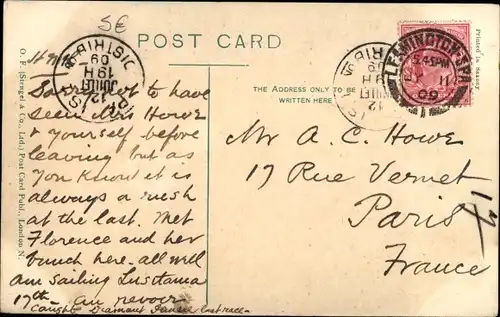 SE
POST CARD
THE ADDRESS ONLY TO BE
WRITTEN HERE
Printed in Saxony
O. F. (Stengel & Co., Ltd.) Post Card Publ., London N.
LEAMINGTON-SPA
5.45 PM
11
09
PARIS
19 H
12
JUILET
09
12
JUILET
09
not to have
seen Mrs Howe
& yourself before
leaving but as
you know it is
always a rush
at the last. Met
Florence and her
bunch here. all well
am sailing Lusitania
17th - au revoir
Caught Diamant
Mr A. C. Howe
17 Rue Vernet
Paris
France